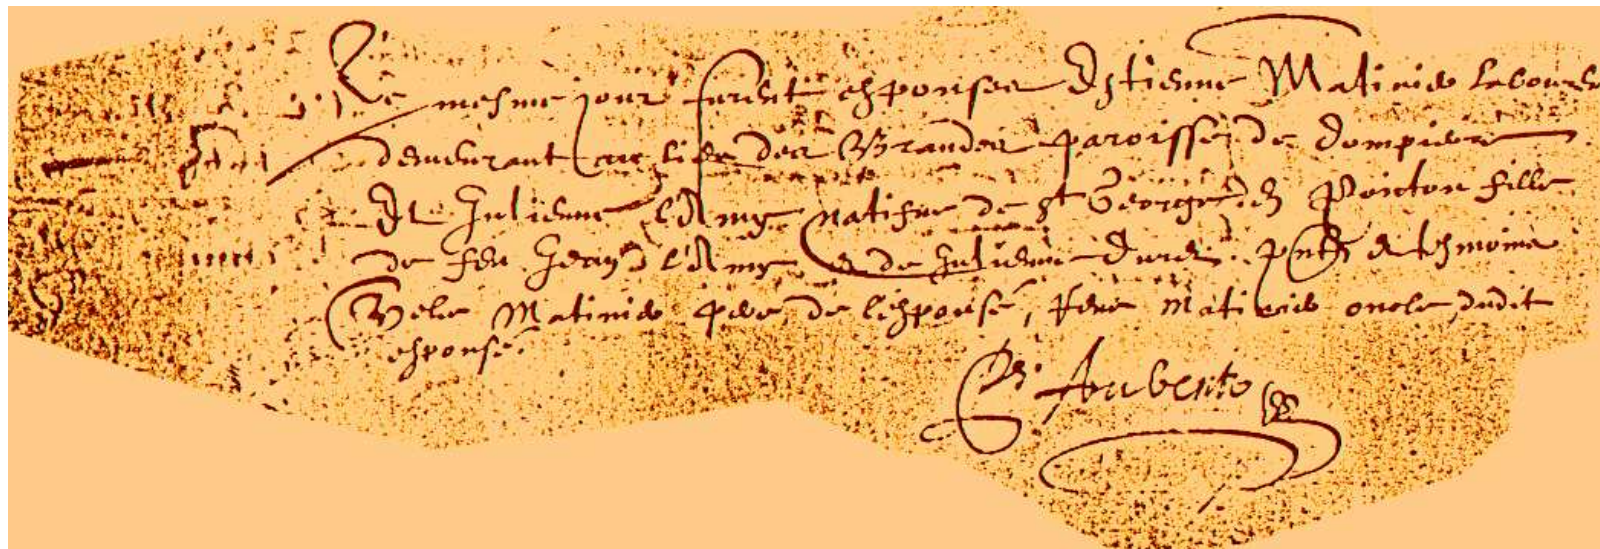 Le mesme jour furent esponsee Estienne Matinier laboure
demeurant au lieu des Brandes paroisse de dompierre
Et Julienne l'Amy natifue de st George Pointon fille
de feu Jean l'Amy & de Julienne pnts & tesmoins
Matinier pere de l'esponsé, Rene Matinier oncle dudit
esponsé
Aubento